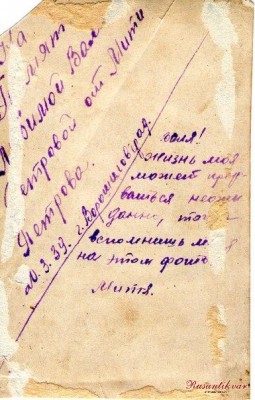 На
Памят
Любимой Вале
етровой от Мити
Петрова.
20.3.39. г. Ворошиловград.
Валя!
Жизнь моя
может прер-
ваться неожи
данно, тог
вспомнишь м я
на этом фото
Митя.
Rusantikvar